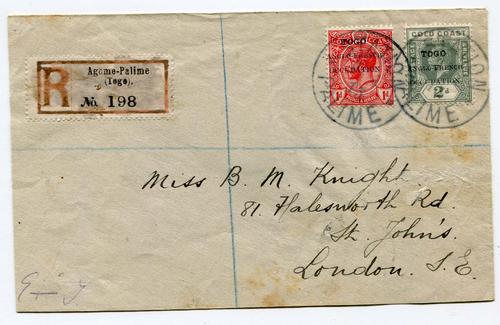 R
Agome-Palime
(Togo).
No. 198
TOGO
ANGLO-FRENCH
OCCUPATION
1d
GOLD COAST
TOGO
ANGLO-FRENCH
OCCUPATION
2d
Miss B. M. Knight.
81. Halesworth Rd.
St. John's.
London. S.E.